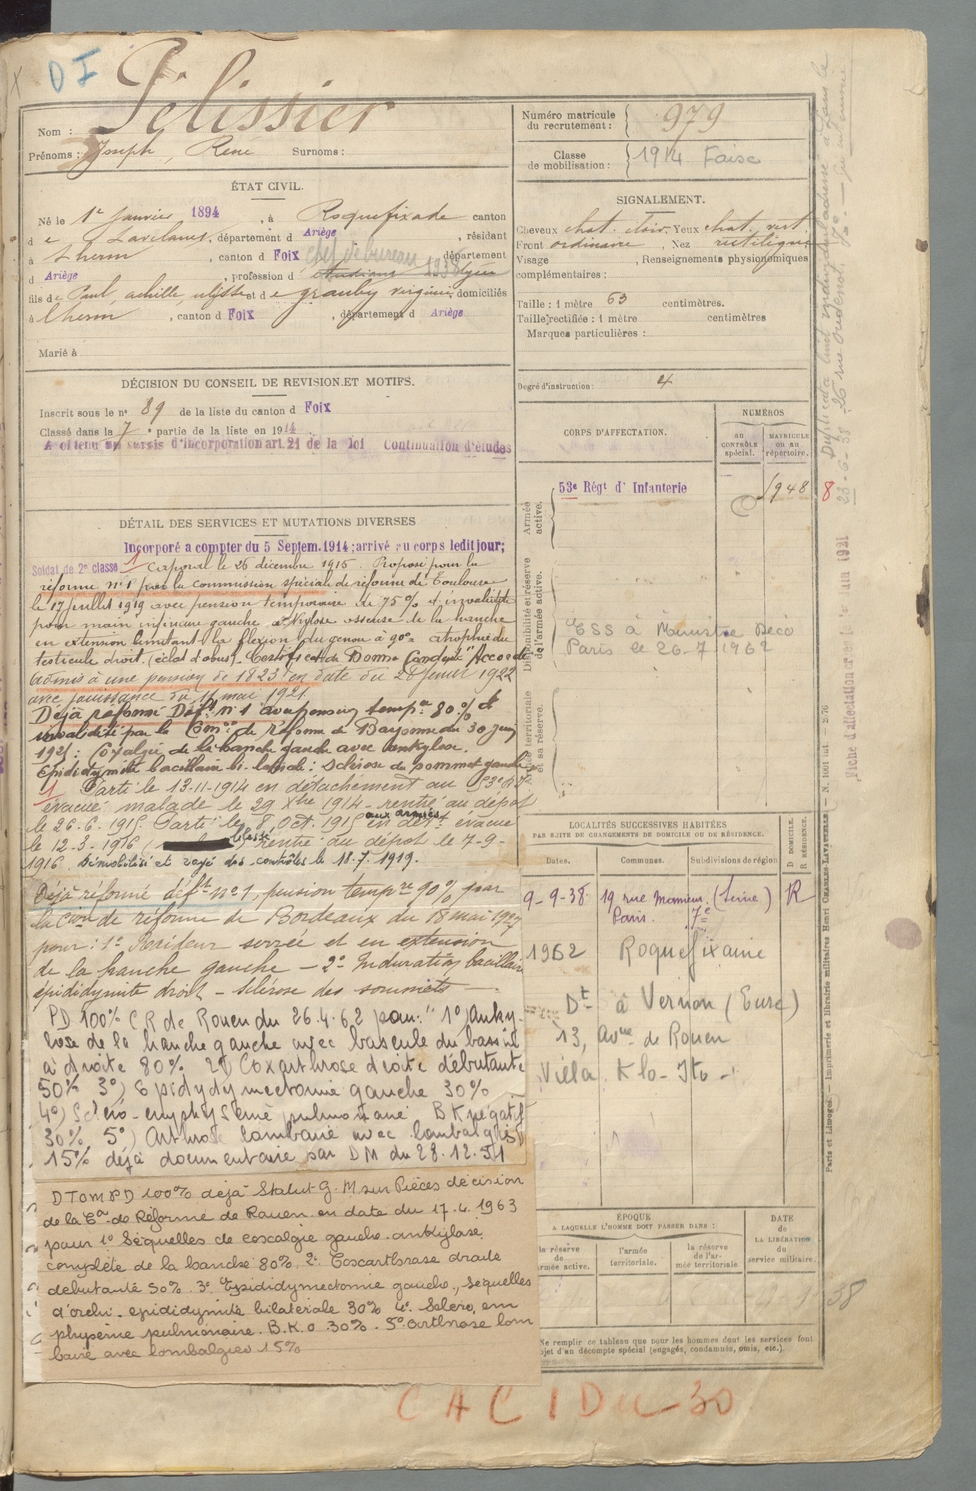 D I
Nom : Pélissier
Prénoms : Joseph, René Surnoms :
Numéro matricule du recrutement : 979
Classe de mobilisation : 1914 Foix
ÉTAT CIVIL.
Né le 1er Janvier 1894, à Roquefixade canton
d e Lavelanet, département d Ariège, résidant
à L'herm, canton d Foix département
d Ariège, profession d chef de bureau 1938
fils de Paul, achille, ulysse et de granby virginie domiciliés
à L'herm, canton d Foix, département d Ariège
Marié à
SIGNALEMENT.
Cheveux chat. clair. Yeux chat. vert.
Front ordinaire, Nez rectiligne
Visage , Renseignements physionomiques
complémentaires :
Taille : 1 mètre 63 centimètres.
Taille rectifiée : 1 mètre centimètres
Marques particulières :
Degré d'instruction : 4
DÉCISION DU CONSEIL DE REVISION ET MOTIFS.
Inscrit sous le n° 89 de la liste du canton d Foix
Classé dans la 7e partie de la liste en 1914
A obtenu un sursis d'incorporation art. 21 de la loi Continuation d'études
CORPS D'AFFECTATION.
NUMÉROS
AU CONTRÔLE spécial.
MATRICULE ou au répertoire.
Armée active.
53e Régt d' Infanterie
1948
8
Disponibilité et réserve de l'armée active.
ESS à Ministre Déco
Paris le 26-7 1962
Armée territoriale et sa réserve.
DÉTAIL DES SERVICES ET MUTATIONS DIVERSES
Incorporé a compter du 5 Septem. 1914 ; arrivé au corps ledit jour;
Soldat de 2e classe 1 Caporal le 26 décembre 1915. Proposé pour la
réforme n° 1 par la commission spéciale de réforme de Toulouse
le 17 juillet 1919 avec pension temporaire de 75% d'invalidité
pour main inférieure gauche ankylose osseuse de la hanche
en extension limitant la flexion du genou à 90° atrophie du
testicule droit. (éclat d'obus). Certificat de Bonne Conduite "Accordé"
Admis à une pension de 1823 en date du 28 février 1922
avec jouissance du 17 mai 1921
Déjà réformé Déft n° 1 avec pension tempre 80% d'
invalidité par la Comon de réforme de Bayonne du 30 Juin
1921 : Coxalgie de la hanche gauche avec ankylose.
Epididymite bacillaire bi-latérale : sclérose du sommet gauche
1 Parti le 13-11-1914 en détachement au 53e
évacué malade le 29 Xbre 1914 - rentré au dépôt
le 26.6.1915 Parti le 8 Oct. 1915 aux armées en détt évacué
le 12-3-1916 blessé rentré au dépôt le 7-9-
1916. Démobilisé et rayé des contrôles le 18.7.1919.
Déjà réformé déft n° 1, pension tempre 90% par
la Cion de réforme de Bordeaux du 18 mai 1927
pour : 1° Raideur serrée et en extension
de la hanche gauche - 2° Induration bacillaire
épididymite droit - sclérose des sommets -
PD 100% CR de Rouen du 26.4.62 pour : " 1°) Anky-
lose de la hanche gauche avec bascule du bassin
à droite 80% 2°) Coxarthrose droite débutante
50% 3°) Epidydymectomie gauche 30%
4°) Scléro-emphysème pulmonaire BK négatif
30% 5°) Arthrose lombaire avec lombalgies
15% déjà documentaire par DM du 28.12.51
DTOM PD 100% déjà Statut G.M sur Pièces décision
de la Con de Réforme de Rouen en date du 17.4.1963
pour 1° Séquelles de coxalgie gauche ankylose
complète de la hanche 80% 2° Coxarthrose droite
débutante 50% 3° Epididymectomie gauche, séquelles
d'orchi-epididymite bilatérale 30% 4° Scléro, em
physème pulmonaire. B.K.o 30% - 5° Arthrose lom
baire avec lombalgies 15%
LOCALITÉS SUCCESSIVES HABITÉES
PAR SUITE DE CHANGEMENTS DE DOMICILE OU DE RÉSIDENCE.
Dates. Communes. Subdivisions de région
D DOMICILE. R RÉSIDENCE.
9-9-38 19 rue Monsieur (Seine) R
Paris. 7e
1962 Roquefixade
Dt à Vernon (Eure)
13, Avnue de Rouen
Villa Klo-Ito
ÉPOQUE
A LAQUELLE L'HOMME DOIT PASSER DANS :
la réserve de l'armée active.
l'armée territoriale.
la réserve de l'armée territoriale
DATE de LA LIBÉRATION du service militaire.
38
Ne remplir ce tableau que pour les hommes dont les services font
objet d'un décompte spécial (engagés, condamnés, omis, etc.).
Paris et Limoges. — Imprimerie et librairie militaires Henri CHARLES-LAVAUZELLE
Fiche d'affectation
Juin 1921
28-6-38
C A C I Du 30